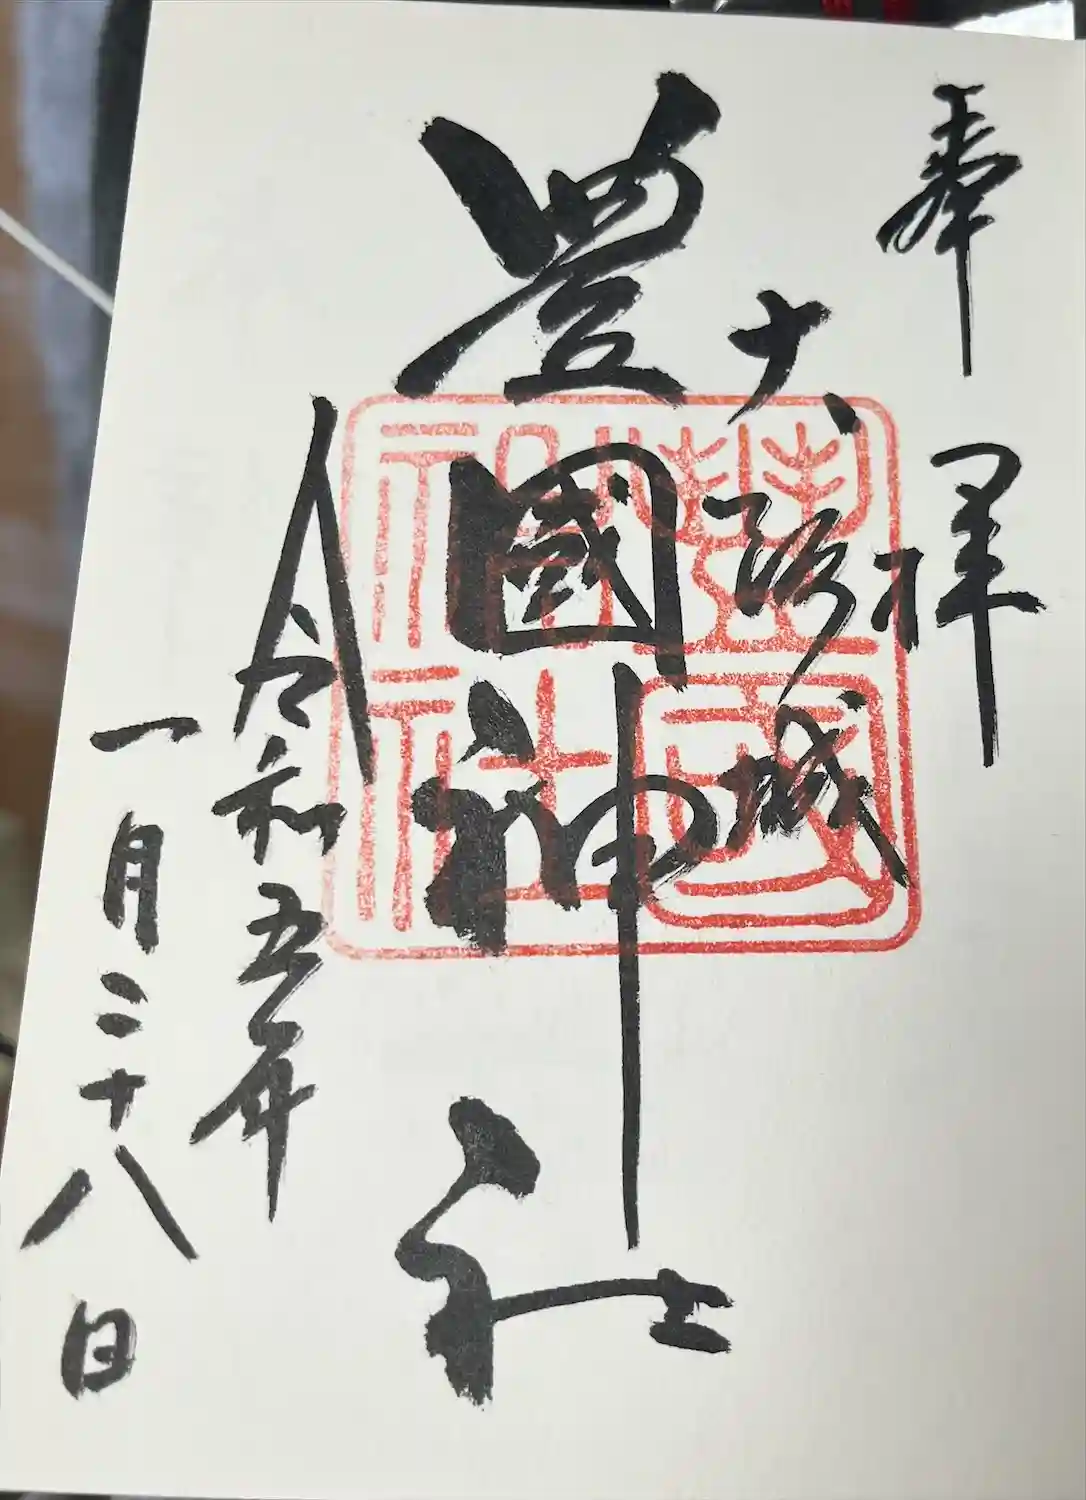 奉拝
大阪城
豊國神社
令和五年
一月二十八日
豐國
神社